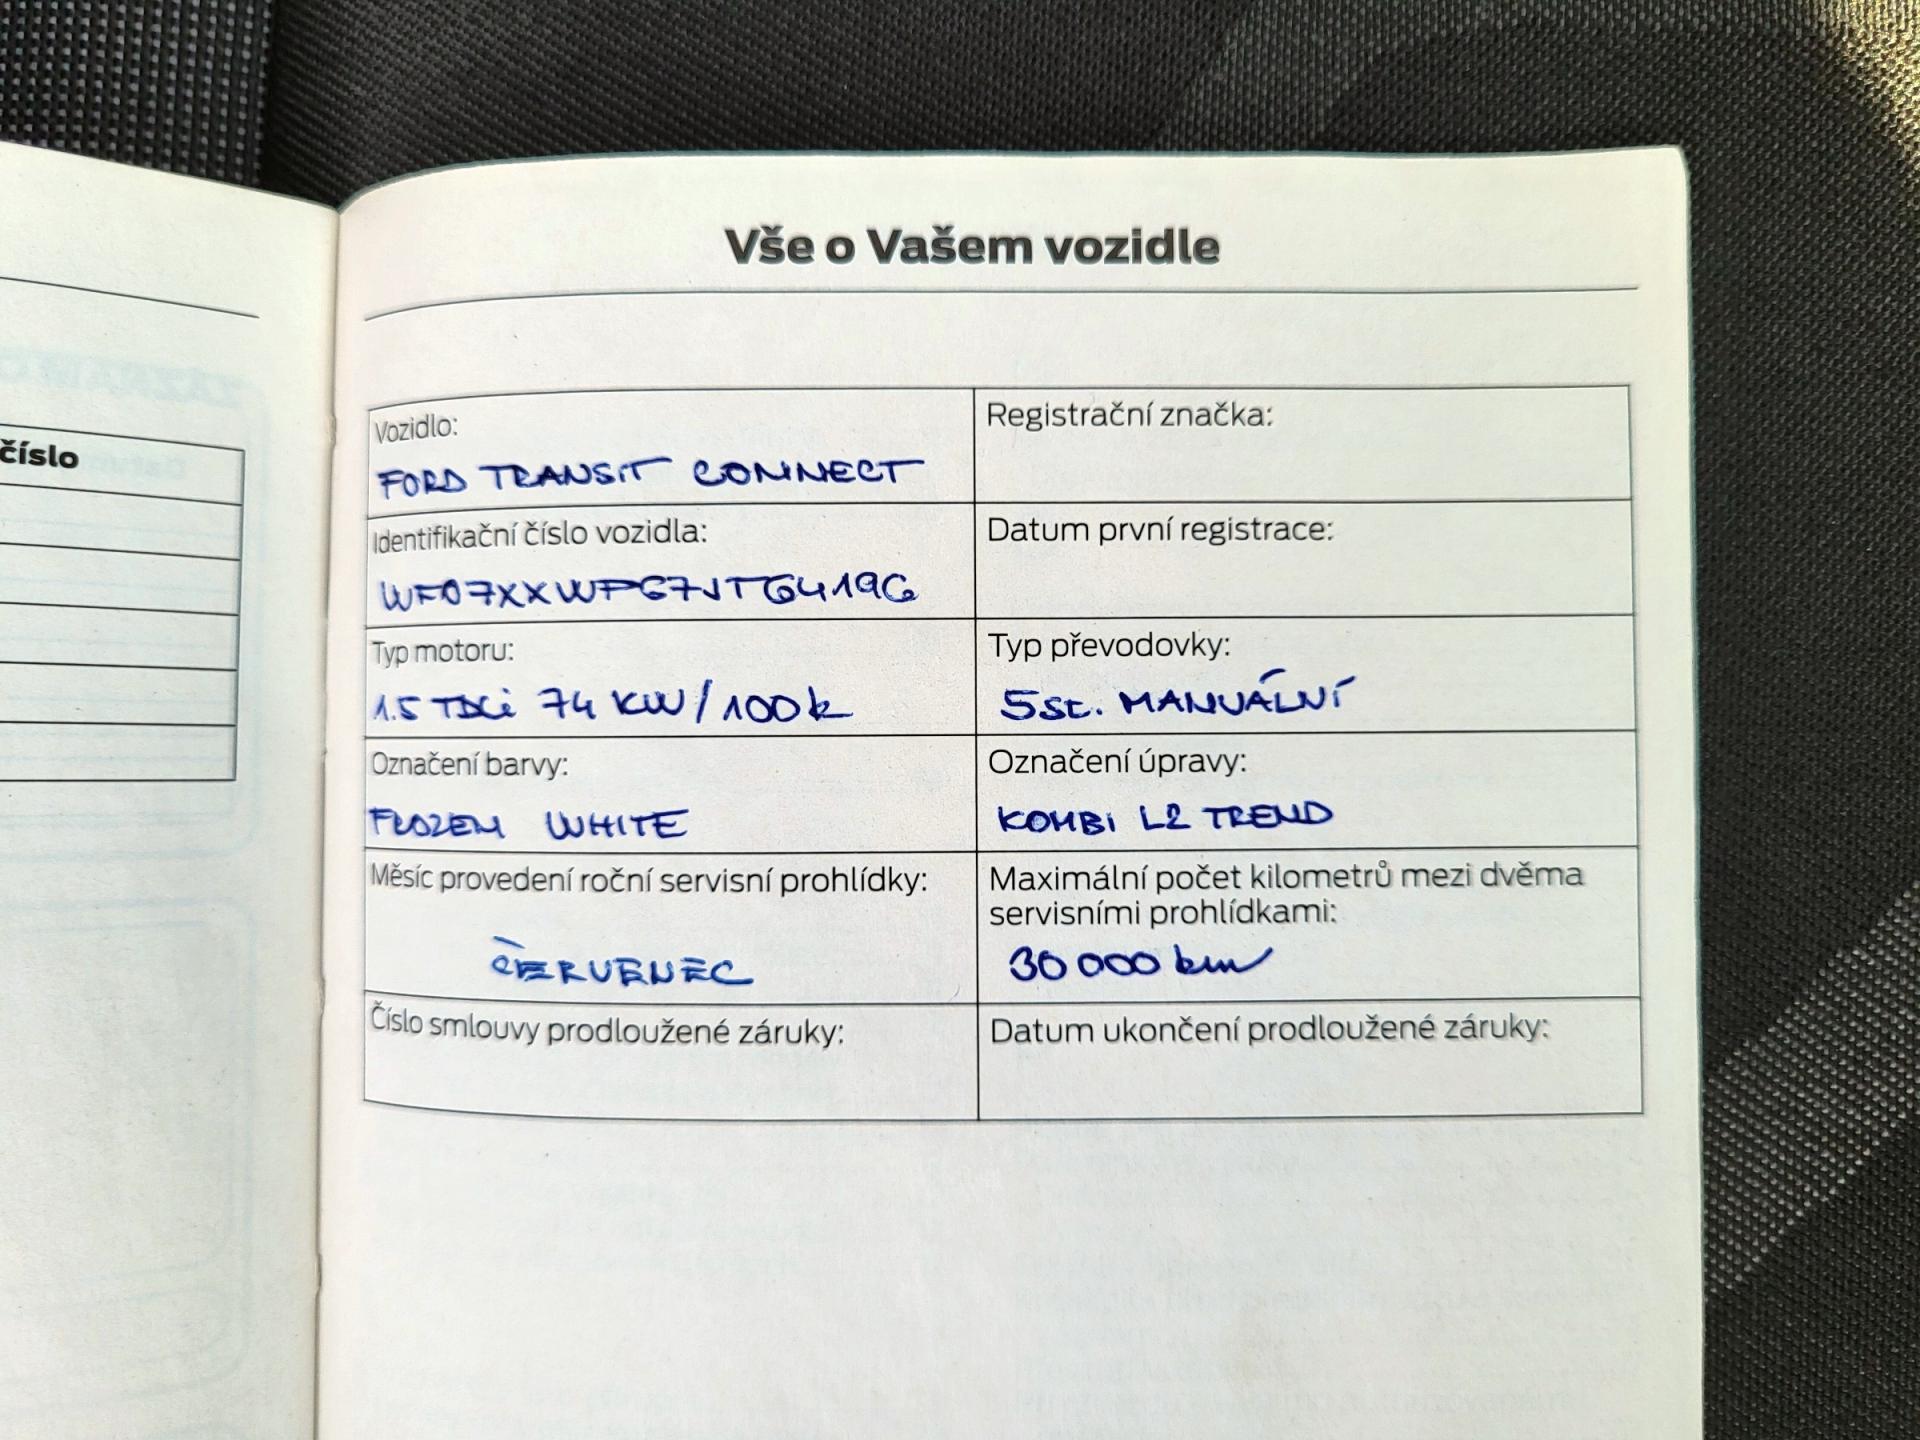 číslo
Vše o Vašem vozidle
Vozidlo:
FORD TRANSIT CONNECT
Registrační značka:
Identifikační číslo vozidla:
Datum první registrace:
Typ motoru:
1.5 TDCi 74 KW/100k
Typ převodovky:
5st. MANUÁLNÍ
Označení barvy:
FROZEN WHITE
Označení úpravy:
KOMBi L2 TREND
Měsíc provedení roční servisní prohlídky:
ČERVENEC
Maximální počet kilometrů mezi dvěma
servisními prohlídkami:
30 000 km
Číslo smlouvy prodloužené záruky:
Datum ukončení prodloužené záruky: